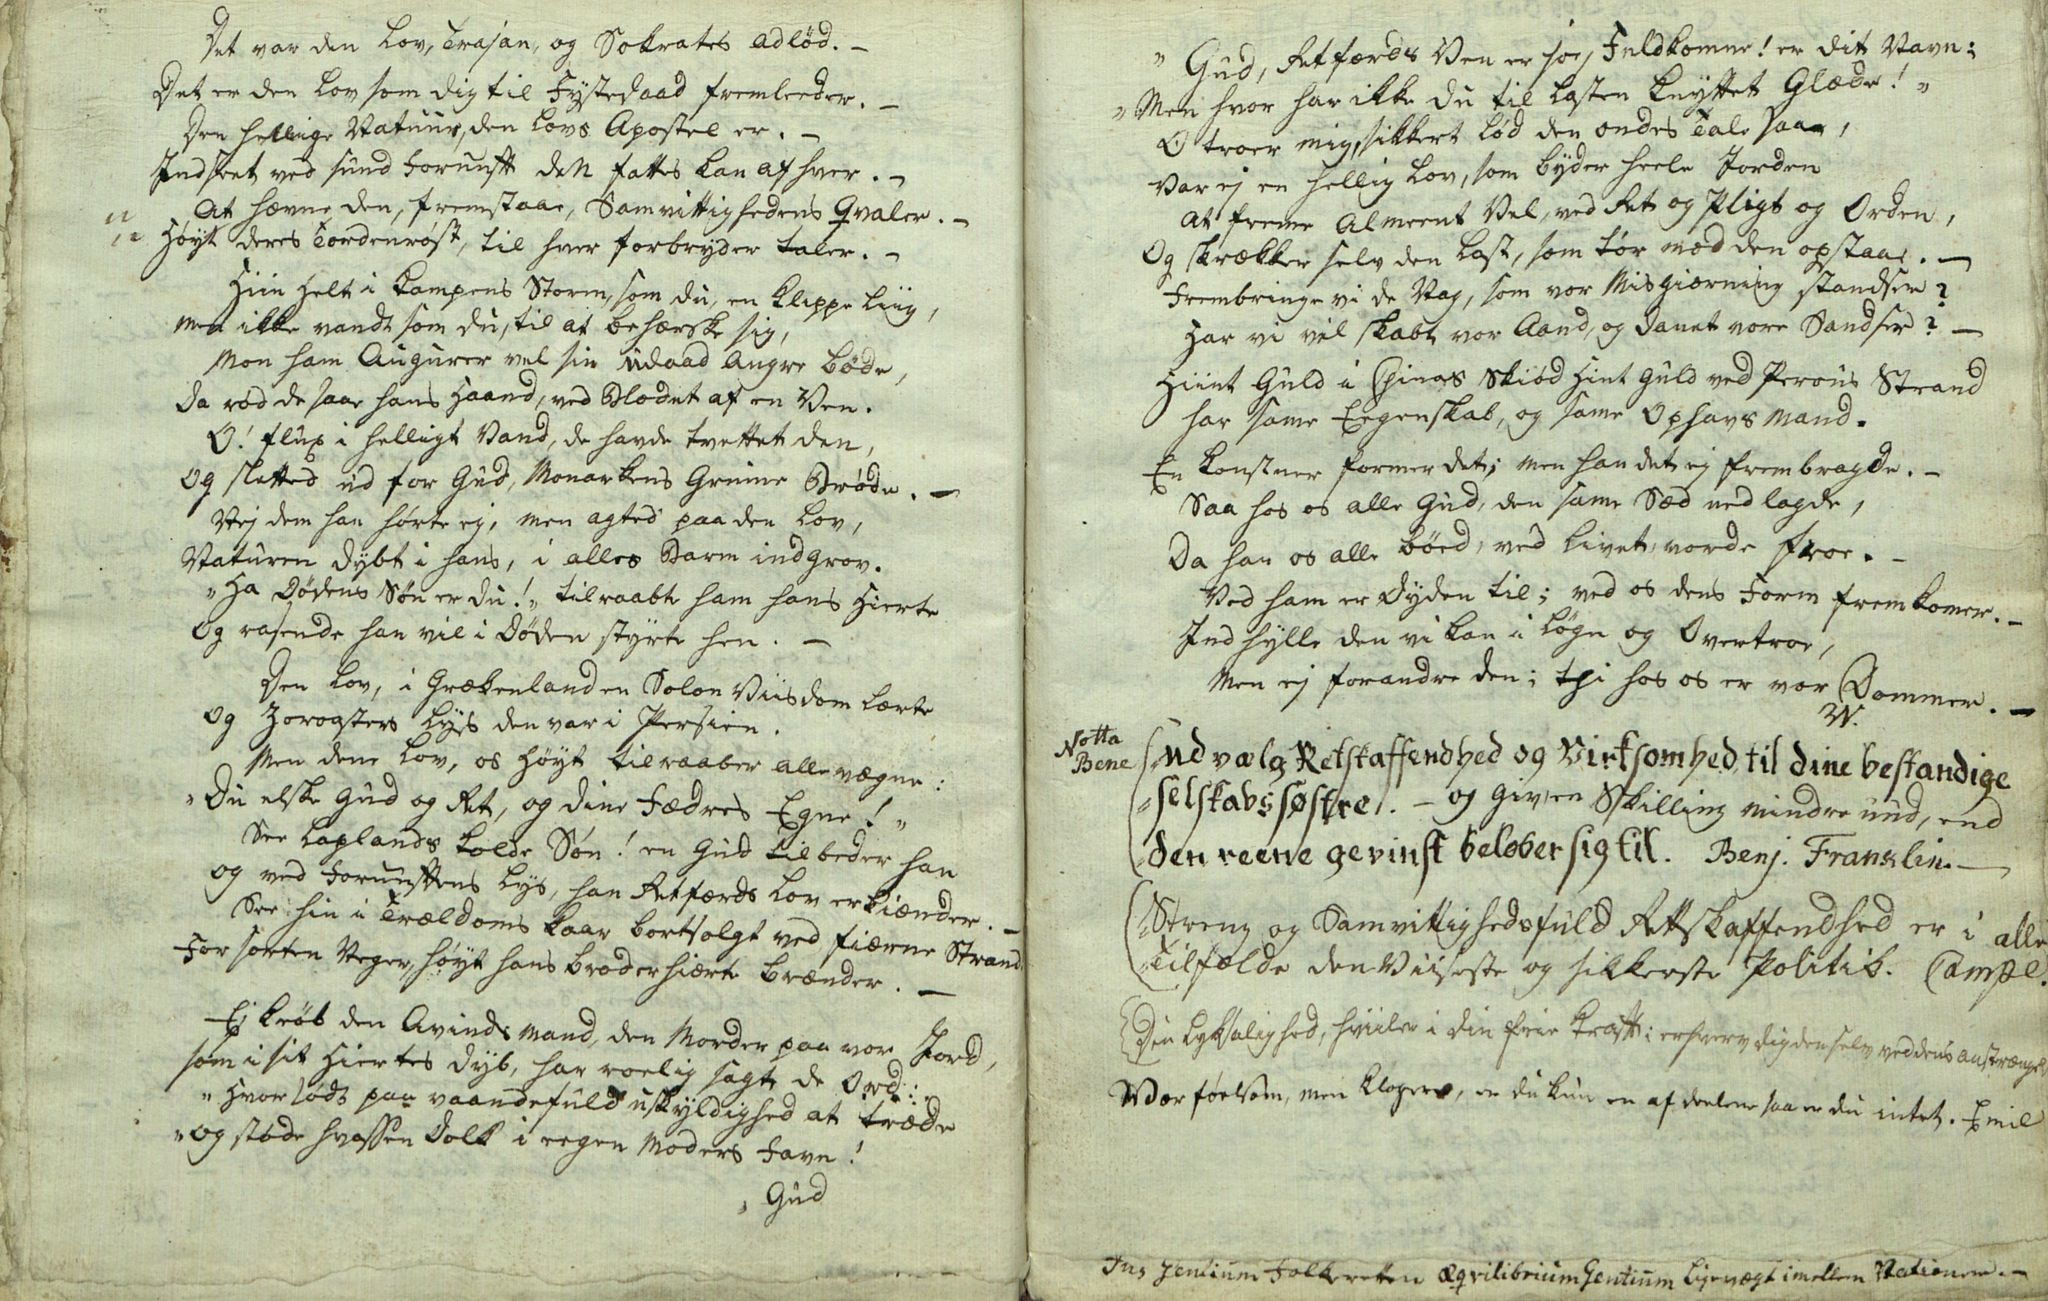 Det var den Lov, Trajan, og Sokrates adlød. –
Det er den Lov som dig til Tystedaad fremleeder. –
Den hellige Natuur, den Lovs Apostel er. –
Indseet ved sund Fornuft den fattes kan af hver. –
At hævne den, fremstaae, Samvittighedens Qvaler. –
Høyt deres Tordenrøst, til hver forbryder taler. –
Hiin Helt i Kampens Storm, som du, en Klippe liig,
Men ikke vandt som du, til at beherske sig,
Mon ham Augurer vel sin Udaad angre bøde,
Da rød de saae hans Haand, ved Blodet af en Ven.
O! flux i helligt Vand, de havde tvettet den,
Og slettes ud for Gud, Monarkens Grumme Brøde. –
Nej dem han hørte ej, men agted paa den Lov,
Naturen dybt i hans, i alles Barm indgrov.
"Ha Dødens Søn er du!" tilraabte ham hans Hierte
Og rasende han vil i Døden styrte hen. –
Den Lov, i Grækenland en Solon Viisdom lærte
Og Zoroasters Lys den var i Persien.
Men denne Lov, os høyt tilraaber allevegne:
"Du elske Gud og Ret, og dine Fædres Egne!"
See Laplands kolde Søn! en Gud tilbeder han
Og ved Fornuftens Lys, han Retfærds Lov erkiænder. –
See hin i Trældoms kaar bortsolgt ved fierne Strand
For sorten Neger, høyt hans broderhierte brænder. –
Ej krøb den Avinds Mand, den Morder paa vor Jord,
som i sit Hiertes dyb, har roelig sagte de Ord:
"Hvor sødt paa vaandefuld uskyldighed at træde
"Og støde hvassen Dolk i eegen Moders Favn!
" Gud
" Gud, Retfærds Ven er foe, Fuldkomne! er dit Navn:
"Men hvor har ikke du til Lasten knyttet Glæde!"
O troer mig, sikkert lød den ondes Tale saae,
Var ej en hellig Lov, som byder heele Jorden
At fremme Almeent Vel, ved Ret og Pligt og Orden,
Og skrækker selv den Last, som tør mod den opstaae. –
Frembringe vi de Nag, som vor Misgierning standser?
Har vi vel skabt vor Aand, og dannet vore Sandser? –
Hiint Guld i Chinas Skiød hint Guld ved Perous Strand
har samme Eegenskab, og samme Ophavs Mand.
En konstner former det; men han det ej frembragde. –
Saa hos os alle Gud, den samme Sæd nedlagde,
Da han os alle bøed, ved Livet vorde froe. –
Ved ham er Dyden til; ved os dens Form fremkommer. –
Indhylle den vi kan i Løgn og Overtroe,
Men ej forandre den; thi hos os er vor Dommer. –
W.
Notta
Bene
Udvælg Retskaffendhed og Virksomhed til dine bestandige
selskabs søstre. – og giv en Skilling mindre uud, end
den reene gevinst beløber sig til. Benj. Franklin. –
Streng og Samvittighedsfuld Retskaffendhed er i alle
Tilfælde den Viiseste og sikkerste Politik. Campe.
Din Lyksalighed, hviiler i din frie Kraft: erhverv dig den selv ved dens anstrængel
Vær følsom, men klogere, er du kun en af deelene saa er du intet. Emil
Jus gentium Folkeretten Æqvilibrium Gentium Ligevægt imellem Nationerne. –